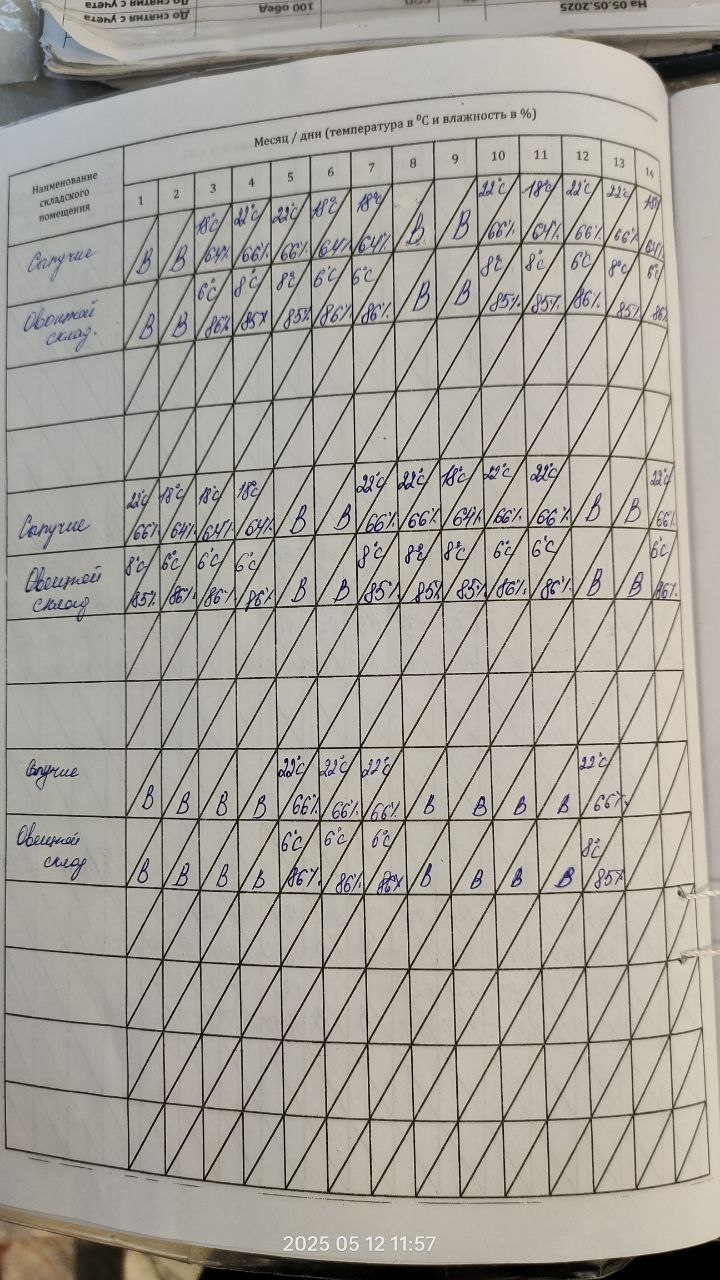 До снятия с учета
100 обед
СОП
На 05.05.2025
До снятия с учета
Месяц / дни (температура в ⁰С и влажность в %)
Наименование складского помещения
1 2 3 4 5 6 7 8 9 10 11 12 13 14
18°С 22°С 22°С 18°С 18°С 22°С 18°С 22°С 22°С 18°С
Сыпучие В В 64% 66% 66% 64% 64% В В 66% 64% 66% 66% 64%
6°С 8°С 8°С 6°С 6°С 8°С 8°С 6°С 8°С 6°С
Овощной склад. В В 86% 85% 85% 86% 86% В В 85% 85% 86% 85% 86%
22°С 18°С 18°С 18°С 22°С 22°С 18°С 22°С 22°С 22°С
Сыпучие 66% 64% 64% 64% В В 66% 66% 64% 66% 66% В В 66%
8°С 6°С 6°С 6°С 8°С 8°С 8°С 6°С 6°С 6°С
Овощной склад 85% 86% 86% 86% В В 85% 85% 85% 86% 86% В В 86%
22°С 22°С 22°С 22°С
Сыпучие В В В В 66% 66% 66% В В В В 66%
6°С 6°С 6°С 8°С
Овощной склад В В В В 86% 86% 86% В В В В 85%
2025 05 12 11:57